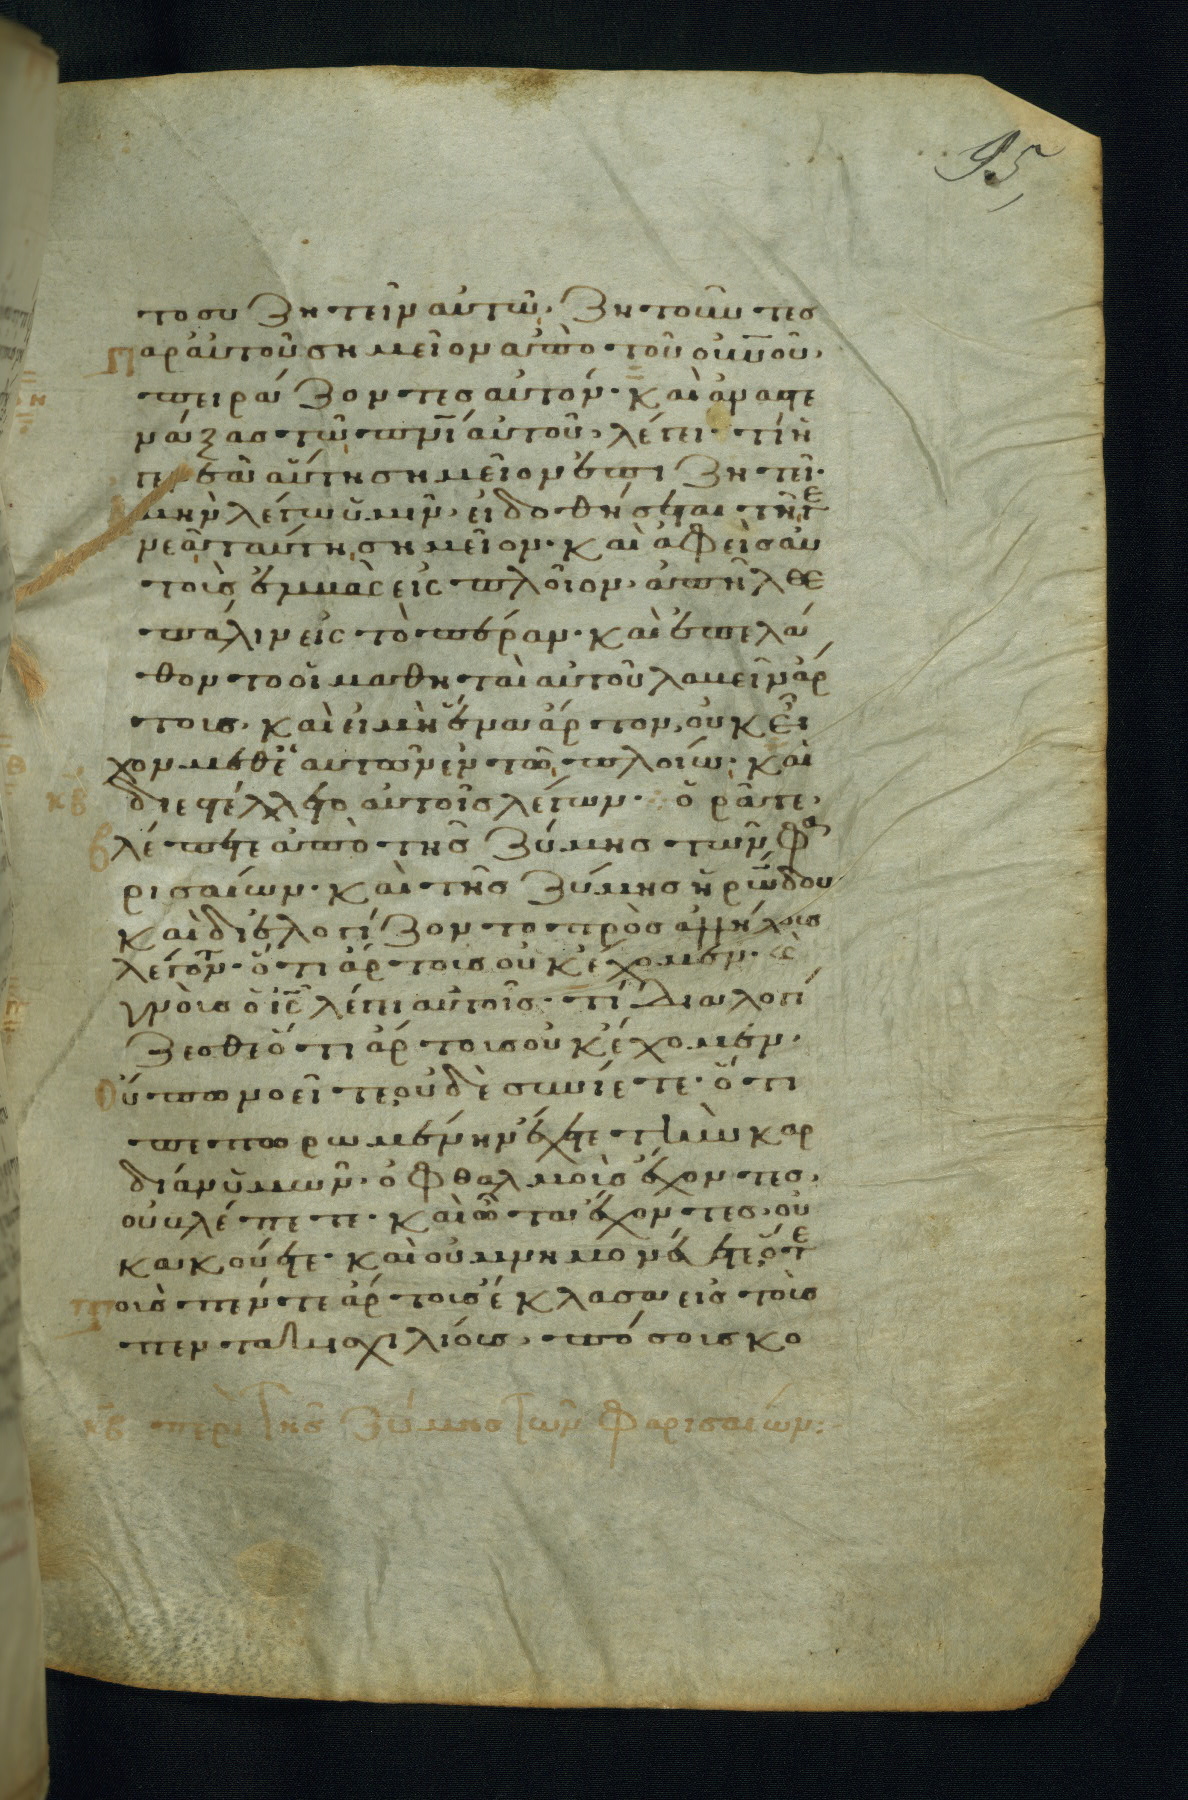 95
το συζητεῖν αὐτῶ, ζητοῦντες
παρ αὐτοῦ σημεῖον ἀπὸ τοῦ οὐνοῦ,
πειράζοντες αὐτόν· καὶ ἀναστε
νάξας τῶ πνι αὐτοῦ, λέγει· τί ἡ
γενεὰ αὕτη σημεῖον ἐπιζητεῖ·
ἀμὴν λέγω ὑμῖν, εἰ δοθήσεται τῆ γε
νεᾶ ταύτη σημεῖον· καὶ ἀφεὶς αὐ
τοὺς ἐμβὰς εἰς πλοῖον, ἀπῆλθε
πάλιν εἰς τὸ πέραν· καὶ ἐπελά
θοντο οἱ μαθηταὶ αὐτοῦ λαβεῖν ἄρ
τους, καὶ εἰ μὴ ἕνα ἄρτον, οὐκ εἶ
χον μεθ ἑαυτῶν ἐν τῶ πλοίω· καὶ
κβ διεστέλλετο αὐτοῖς λέγων· ὁρᾶτε,
βλέπετε ἀπὸ τῆς ζύμης τῶν φα
ρισαίων· καὶ τῆς ζύμης ἡρώδου
καὶ διελογίζοντο πρὸς ἀλλήλους
λέγοντ· ὅτι ἄρτους οὐκ ἔχομεν· καὶ
γνοὺς ὁ ις λέγει αὐτοῖς· τί διαλογί
ζεσθε ὅτι ἄρτους οὐκ ἔχομεν·
Οὔπω νοεῖτε, οὐδὲ συνίετε· ὅτι
πεπωρωμένην ἔχετε τὴν καρ
δίαν ὑμῶν· ὀφθαλμοὺς ἔχοντες,
οὐ βλέπετε· καὶ ὦτα ἔχοντες, οὐ
κ ἀκούετε· καὶ οὐ μνημονεύετε, ὅτε
τοὺς πέντε ἄρτους ἔκλασα εἰς τοὺς
πεντακισχιλίους, πόσους κο
κβ περὶ τῆς ζύμης τῶν φαρισαίων: